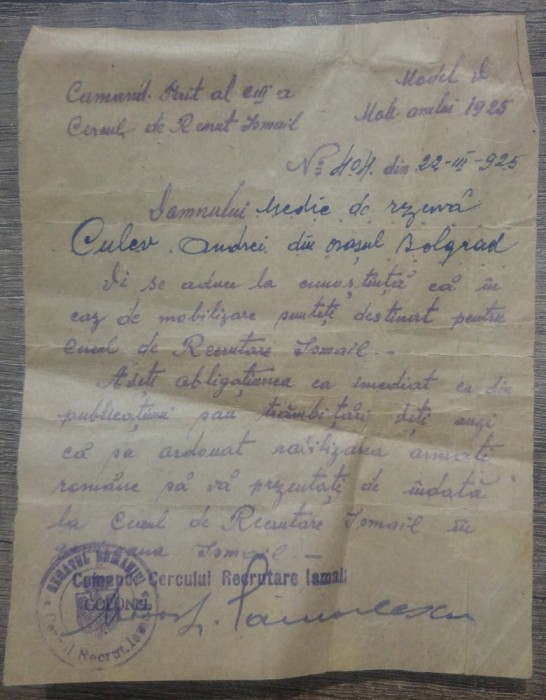 Comand. Milit al CIII a
Cercul de Recrut Ismail
Model
Mob anului 1925
No 404 din 22-III-925
Domnului Medic de rezervă
Culev Andrei din orașul Bolgrad
Vi se aduce la cunoștință că în
caz de mobilizare sunteți destinat pentru
Cercul de Recrutare Ismail.-
Aveți obligațiunea ca imediat ce din
publicațiuni sau trâmbițări veți auzi
că s'a ordonat mobilizarea armatei
române să vă prezentați de îndată
la Cercul de Recrutare Ismail în
Ismail.-
Comandt Cercului Recrutare Ismail
COLONEL
REGATUL ROMÂNIEI
Cercul Recrut. Ismail